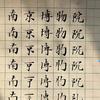 南京博物院
南京博物院
南京博物院
南博院
南博院
南博院